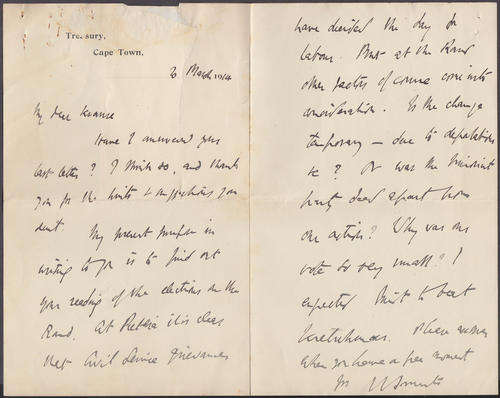 Treasury,
Cape Town.
March 1914
My dear Krause
Have I answered your
last letter? I think so, and thank
you for the hints & suggestions you
sent. My present purpose in
writing to you is to find out
your reading of the elections on the
Rand. At Pretoria it is clear
that Civil Service grievances
have decided the day for
labour. But at the Rand
other factors of course come into
consideration. Is the change
temporary — due to deportations
&c? Or was the Unionist
party dead apart from
our action? Why was our
vote so very small? I
expected Smit to beat
. Please answer
when you have a free moment
Yrs J C Smuts